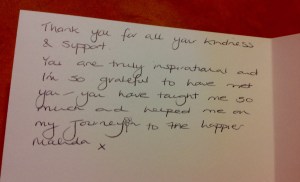 Thank you for all your kindness
& Support
You are truly inspirational and
I'm so grateful to have met
you - you have taught me so
much and helped me on
my journey to the happier
x